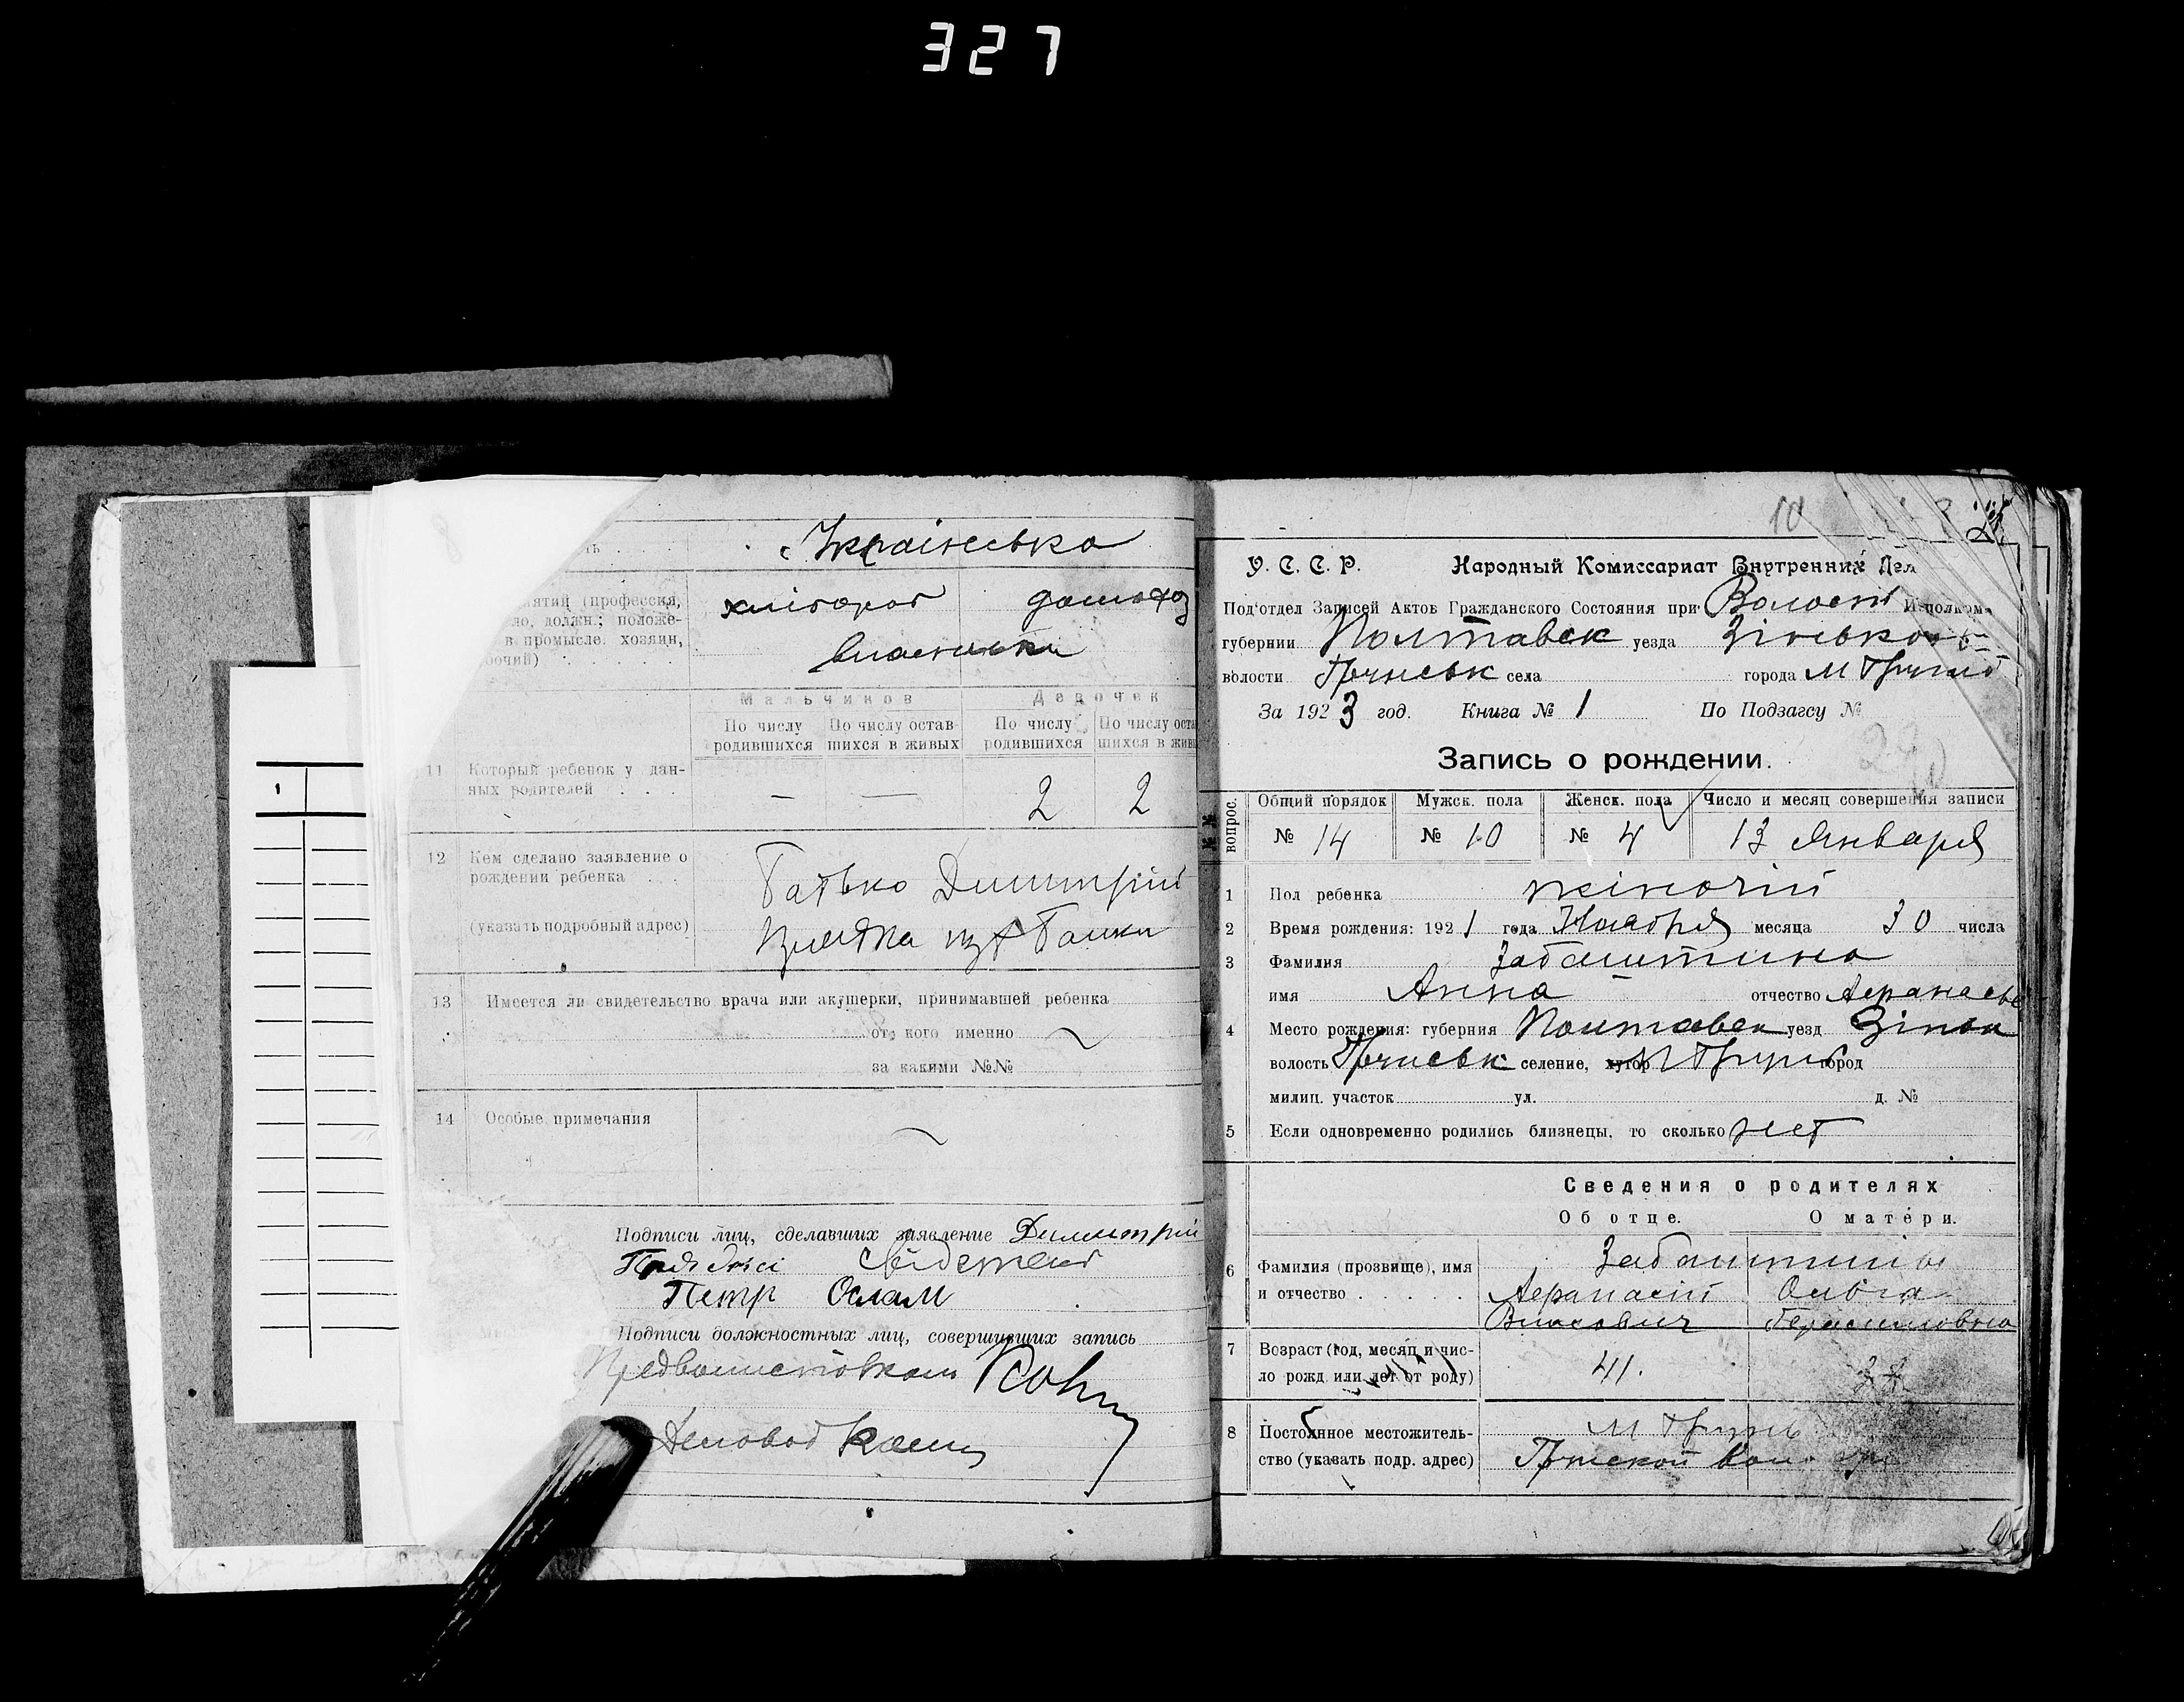 327
Українська
ятий (профессия,
ло, должн.; положе-
в промысле. хозяин,
бочий)
хлібороб
домохоз
власники
Мальчиков
Девочек
По числу родившихся
По числу оставшихся в живых
По числу родившихся
По числу оста
шихся в жив
11 Который ребенок у дан-
ных родителей
— — 2 2
12 Кем сделано заявление о
рождении ребенка
(указать подробный адрес)
Батько Димитрій
13 Имеется ли свидетельство врача или акушерки, принимавшей ребенка
от кого именно
за какими №№
14 Особые примечания
Подписи лиц, сделавших заявление Димитрій
Петр
Подписи должностных лиц, совершивших запись
Деловод
10
У. С. С. Р. Народный Комиссариат Внутренних Дел
Под'отдел Записей Актов Гражданского Состояния при Волост Исполком
губернии Полтавск уезда Зіньков
волости Груньск села города М Грунь
За 1923 год. Книга № 1 По Подзагсу №
Запись о рождении.
№№ вопрос.
Общий порядок Мужск. пола Женск. пола Число и месяц совершения записи
№ 14 № 10 № 4 13 Января
1 Пол ребенка жіночій
2 Время рождения: 1921 года Ноября месяца 30 числа
3 Фамилия Забаштина
имя Анна отчество Афанасьев
4 Место рождения: губерния Полтавск уезд Зіньк
волость Груньск селение, хутор М Грунь город
милиц. участок ул. д. №
5 Если одновременно родились близнецы, то сколько нет
Сведения о родителях
Об отце. О матери.
6 Фамилия (прозвище), имя
и отчество
Забаштины
Афанасій Ольга
Власович Герасимовна
7 Возраст (год, месяц и чис-
ло рожд или лет от роду)
41.
8 Постоянное местожитель-
ство (указать подр. адрес)
М Грунь
Грунской Вол.